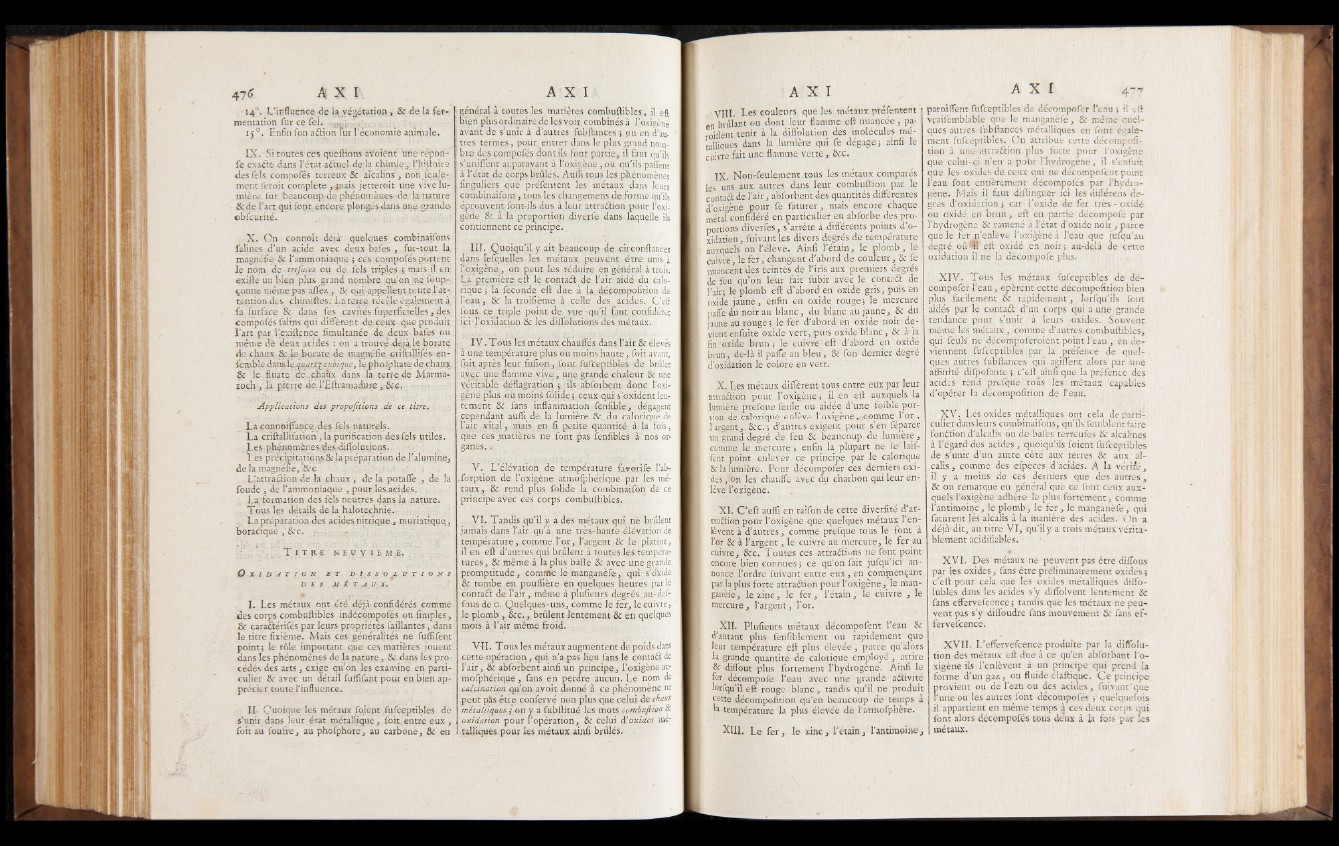 476 A X I
14°. L'influence de la végétation, & de la fer-
mentation sur ce sel.
15°. Enfin son action sur l'économie animale.
IX. Si toutes ces questions avoient une répon-
se exacte dans l'état actuel de la chimie, l'histoire
des sels composés terreux & alcalins, non seule-
ment seroit complète, mais jetteroit une vive lu-
mière sur beaucoup de phénomènes de la nature
& de l'art qui sont encore plongés dans une grande
obscurité.
X. On connoît déjà quelques combinaisons
salines d'un acide avec deux bases, sur-tout la
magnésie & l'ammoniaque ; ces composés portent
le nom de trisules ou de sels triples ; mais il en
existe un bien plus grand nombre qu'on ne soup-
çonne même pas assez, & qui appellent toute l'at-
tention des chimistes. La terre recèle également à
sa surface & dans ses cavités superficielles, des
composés salins qui diffèrent de ceux que produit
l'art par l'existence simultanée de deux bases ou
même de deux acides : on a trouvé déjà le borate
de chaux & le borate de magnésie cristallisés en-
semble dans le quartz cubique, le phosphate de chaux
& le fluate de chaux dans la terre de Marma-
roch, la pierre de l'Estramadure, &c.
Applications des propositions de ce titre.
La connoissance des sels naturels.
La cristallisation, la purification des sels utiles.
Les phénomènes des dissolutions.
Les précipitations & la préparation de l'alumine,
de la magnésie, &c.
L'attraction de la chaux, de la potasse, de la
soude, de l'ammoniaque, pour les acides.
La formation des sels neutres dans la nature.
Tous les détails de la halotechnie.
La préparation des acides nitrique, muriatique,
boracique, &c.
TITRE NEUVIÈME.
OXIDATION ET DISSOLUTIONS
DES MÉTAUX.
I. Les métaux ont été déjà considérés comme
des corps combustibles indécomposés ou simples,
& caractérisés par leurs propriétés saillantes, dans
le titre sixième. Mais ces généralités ne suffisent
point ; le rôle important que ces matières jouent
dans les phénomènes de la nature, & dans les pro-
cédés des arts, exige qu'on les examine en parti-
culier & avec un détail suffisant pour en bien ap-
précier toute l'influence.
II. Quoique les métaux soient susceptibles de
s'unir dans leur état métallique, soit entre eux,
soit au soufre, au phosphore, au carbone, & en
A X I
général à toutes les matières combustibles, il est
bien plus ordinaire de les voir combinés à l'oxigène
avant de s'unir à d'autres substances ; ou en d'au-
tres termes, pour entrer dans le plus grand nom-
bre des composés dont ils font partie, il faut qu'ils
s'unissent auparavant à l'oxigène, ou qu'ils passent
à l'état de corps brûlés. Aussi tous les phénomènes
singuliers que présentent les métaux dans leurs
combinaisons, tous les changemens de forme qu'ils
éprouvent sont-ils dus à leur attraction pour l'oxi-
gène & à la proportion diverse dans laquelle ils
contiennent ce principe.
III. Quoiqu'il y ait beaucoup de circonstances
dans lesquelles les métaux peuvent être unis à
l'oxigène, on peut les réduire en général à trois.
La première est le contact de l'air aidé du calo-
rique ; la seconde est due à la décomposition de
l'eau, & la troisième à celle des acides. C'est
sous ce triple point de vue qu'il faut considérer
ici l'oxidation & les dissolutions des métaux.
IV. Tous les métaux chauffés dans l'air & élevés
à une température plus ou moins haute, soit avant,
soit après leur fusion, sont susceptibles de brûler
avec une flamme vive, une grande chaleur & une
véritable déflagration ; ils absorbent donc l'oxi-
gène plus ou moins solide ; ceux qui s'oxident len-
tement & sans inflammation sensible, dégagent
cependant aussi de la lumière & du calorique de
l'air vital, mais en si petite quantité à la fois,
que ces matières ne sont pas sensibles à nos or-
ganes.
V. L'élévation de température favorise l'ab-
sorption de l'oxigène atmosphérique par les mé-
taux, & rend plus solide la combinaison de ce
principe avec ces corps combustibles.
VI. Tandis qu'il y a des métaux qui ne brûlent
jamais dans l'air qu'à une très-haute élévation de
température, comme l'or, l'argent & le platine,
il en est d'autres qui brûlent à toutes les tempéra-
tures, & même à la plus basse & avec une grande
promptitude, comme le manganèse, qui s'oxide
& tombe en poussière en quelques heures par le
contact de l'air, même à plusieurs degrés au-des-
sous de 0. Quelques-uns, comme le fer, le cuivre,
le plomb, &c., brûlent lentement & en quelques
mois à l'air même froid.
VII. Tous les métaux augmentent de poids dans
cette opération, qui n'a pas lieu sans le contact de
l'air, & absorbent ainsi un principe, l'oxigène at-
mosphérique, sans en perdre aucun. Le nom de
calcination qu'on avoit donné à ce phénomène ne
peut pas être conservé non plus que celui de chaux
métalliques ; on y a substitué les mots combustion &
oxidation pour l'opération, & celui d'oxides mé-
talliques pour les métaux ainsi brûlés.
A X I
VIII. Les couleurs que les métaux présentent
en brûlant ou dont leur flamme est nuancée, pa-
roissent tenir à la dissolution des molécules mé-
talliques dans la lumière qui se dégage ; ainsi le
cuivre fait une flamme verte, &c.
IX. Non-seulement tous les métaux comparés
les uns aux autres dans leur combustion par le
contact de l'air, absorbent des quantités différentes
d'oxigène pour se saturer, mais encore chaque
métal considéré en particulier en absorbe des pro-
portions diverses, s'arrête à différents points d'o-
xidation, suivant les divers degrés de température
auxquels on l'élève. Ainsi l'étain, le plomb, le
cuivre, le fer, changent d'abord de couleur, & se
nuancent des teintes de l'iris aux premiers degrés
de feu qu'on leur fait subir avec le contact de
l'air ; le plomb est d'abord en oxide gris, puis en
oxide jaune, enfin en oxide rouge ; le mercure
passe du noir au blanc, du blanc au jaune, & du
jaune au rouge ; le fer d'abord en oxide noir de-
vient ensuite oxide vert, puis oxide blanc, & à la
fin oxide brun ; le cuivre est d'abord en oxide
brun, de-là il passe au bleu, & son dernier degré
d'oxidation le colore en vert.
X. Les métaux diffèrent tous entre eux par leur
attraction pour l'oxigène ; il en est auxquels la
lumière presque seule ou aidée d'une foible por-
tion de calorique enlève l'oxigène, comme l'or,
l'argent, &c. ; d'autres exigent pour s'en séparer
un grand degré de feu & beaucoup de lumière,
comme le mercure, enfin la plupart ne se lais-
sent point enlever ce principe par le calorique
& la lumière. Pour décomposer ces derniers oxi-
des, on les chauffe avec du charbon qui leur en-
lève l'oxigène.
XI. C'est aussi en raison de cette diversité d'at-
traction pour l'oxigène que quelques métaux l'en-
lèvent à d'autres, comme presque tous le font à
l'or & à l'argent, le cuivre au mercure, le fer au
cuivre, &c. Toutes ces attractions ne sont point
encore bien connues ; ce qu'on fait jusqu'ici an-
nonce l'ordre suivant entre eux, en commençant
par la plus forte attraction pour l'oxigène, le man-
ganèse, le zinc, le fer, l'étain, le cuivre, le
mercure, l'argent, l'or.
XII. Plusieurs métaux décomposent l'eau &
d'autant plus sensiblement ou rapidement que
leur température est plus élevée, parce qu'alors
la grande quantité de calorique employé, attire
& dissout plus fortement l'hydrogène. Ainsi le
fer décompose l'eau avec une grande activité
lorsqu'il est rouge blanc, tandis qu'il ne produit
cette décomposition qu'en beaucoup de temps à
la température la plus élevée de l'atmosphère.
XIII. Le fer, le zinc, l'étain, l'antimoine,
A X I 477
paroissent susceptibles de décomposer l'eau ; il est
vraisemblable que le manganèse, & même quel-
ques autres substances métalliques en sont égale-
ment susceptibles. On attribue cette décomposi-
tion à une attraction plus forte pour l'oxigène
que celui-ci n'en a pour l'hydrogène, il s'ensuit
que les oxides de ceux qui ne décomposent point
l'eau sont entièrement décomposés par l'hydro-
gène. Mais il faut distinguer ici les différens de-
grés d'oxidation ; car l'oxide de fer très-oxidé
ou oxidé en brun, est en partie décomposé par
l'hydrogène & ramené à l'état d'oxide noir, parce
que le fer n'enlève l'oxigène à l'eau que jusqu'au
degré où il est oxidé en noir ; au-delà de cette
oxidation il ne la décompose plus.
XIV. Tous les métaux susceptibles de dé-
composer l'eau, opèrent cette décomposition bien
plus facilement & rapidement, lorsqu'ils sont
aidés par le contact d'un corps qui a une grande
tendance pour s'unir à leurs oxides. Souvent
même les métaux, comme d'autres combustibles,
qui seuls ne décomposeroient point l'eau, en de-
viennent susceptibles par la présence de quel-
ques autres substances qui agissent alors par une
affinité disposante ; c'est ainsi que la présence des
acides rend presque tous les métaux capables
d'opérer la décomposition de l'eau.
XV. Les oxides métalliques ont cela de parti-
culier dans leurs combinaisons, qu'ils semblent faire
fonction d'alcalis ou de bases terreuses & alcalines
à l'égard des acides, quoiqu'ils soient susceptibles
de s'unir d'un autre côté aux terres & aux al-
calis, comme des espèces d'acides. A la vérité,
il y a moins de ces derniers que des autres,
& on remarque en général que ce sont ceux aux-
quels l'oxigène adhère le plus fortement, comme
l'antimoine, le plomb, le fer, le manganèse, qui
saturent les alcalis à la manière des acides. On a
déjà dit, au titre VI, qu'il y a trois métaux vérita-
blement acidifiables.
XVI. Des métaux ne peuvent pas être dissous
par les oxides, sans être préliminairement oxides ;
c'est pour cela que les oxides métalliques disso-
lubles dans les acides s'y dissolvent lentement &
sans effervescence ; tandis que les métaux ne peu-
vent pas s'y dissoudre sans mouvement & sans ef-
fervescence.
XVII. L'effervescence produite par la dissolu-
tion des métaux est due à ce qu'en absorbant l'o-
xigène ils l'enlèvent à un principe qui prend la
forme d'un gaz, ou fluide élastique. Ce principe
provient ou de l'eau ou des acides, suivant que
l'une ou les autres sont décomposés ; quelquefois
il appartient en même temps à ces deux corps qui
sont alors décomposés tous deux à la fois par les
métaux.